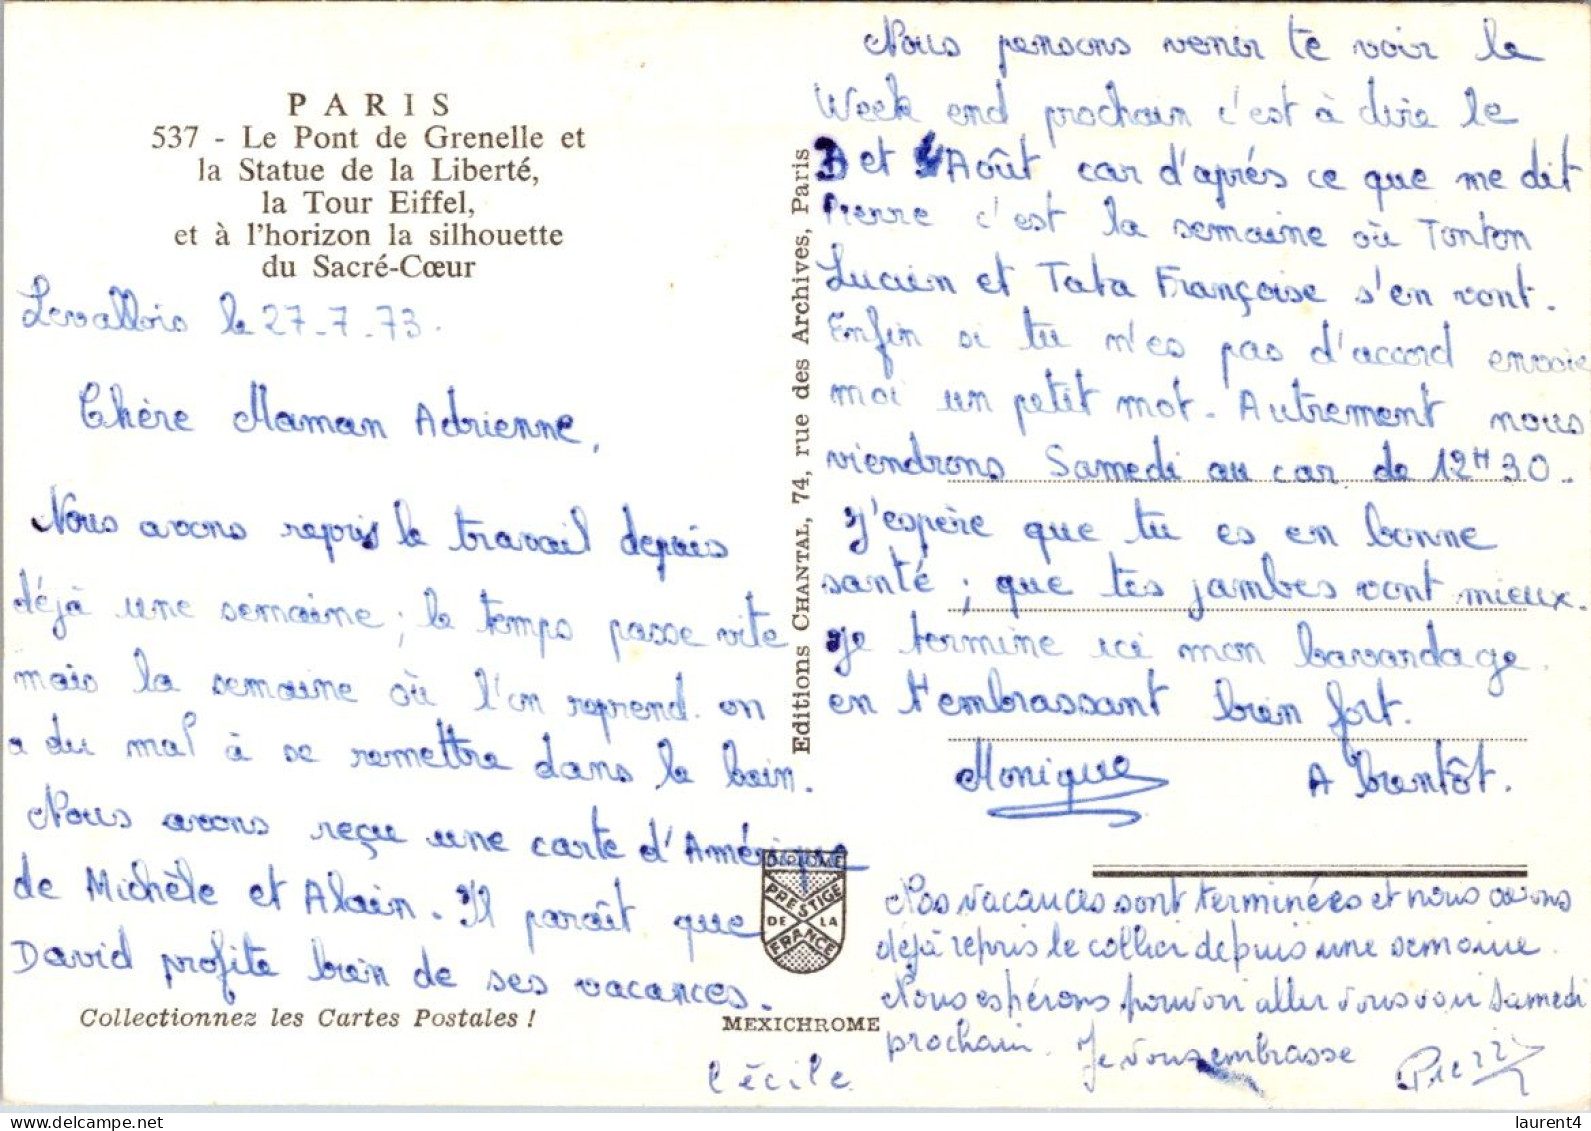 PARIS
537 - Le Pont de Grenelle et
la Statue de la Liberté,
la Tour Eiffel,
et à l'horizon la silhouette
du Sacré-Cœur
Levallois le 27-7-73.
Chère Maman Adrienne,
Nous avons repris le travail depuis
déjà une semaine ; le temps passe vite
mais la semaine où l'on reprend on
a du mal à se remettre dans le bain.
Nous avons reçu une carte d'Amérique
de Michèle et Alain. Il paraît que
David profite bien de ses vacances.
Collectionnez les Cartes Postales !
Editions CHANTAL, 74, rue des Archives, Paris
DIPLOME
PRESTIGE
DE LA
FRANCE
MEXICHROME
Nous pensons venir te voir le
Week end prochain c'est à dire le
et 4 Août car d'après ce que me dit
Pierre c'est la semaine où Tonton
Lucien et Tata Françoise s'en vont.
Enfin si tu n'es pas d'accord envoie
moi un petit mot. Autrement nous
viendrons Samedi au car de 12H30.
J'espère que tu es en bonne
santé ; que tes jambes vont mieux.
Je termine ici mon bavardage
en t'embrassant bien fort.
Monique A bientôt.
Nos vacances sont terminées et nous avons
déjà repris le collier depuis une semaine.
Nous espérons pouvoir aller vous voir Samedi
prochain. Je vous embrasse
Pierre
Cécile
laurent4